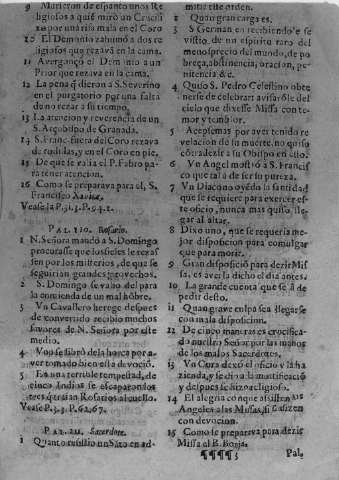 9 Murieron de espanto unos Re
ligiosos a qué miró un Crucifi
xo por una risa mala en el Coro
10 El Demonio zahumó a dos re
ligiosos que rezavã en la cama.
11 Avergonçó el Demonio a un
Prior que rezava en la cama.
12 La pena q̃ dieron a S. Severino
en el purgatorio por una falta
de no rezar a su tiempo.
13 La atencion y reverencia de un
S. Arçobispo de Granada.
14 S. Francisco fuera del Coro rezava
de rodillas, y en el Coro en pie.
15 De que se valia el P. Fabro pa-
ra tener atencion.
16 Como se preparava para el, S.
Francisco Xavier.
Vease la P. 31. J. P. 54. 2.
PAL. 110. Rosario.
1 N. Señora mandó a S. Domingo
procurasse que los fieles le rezas
sen por los misterios, de que se
seguirian grandes provechos.
2 S. Domingo se valió del para
la enmienda de un mal hõbre.
3 Vn Cavallero herege despues
de convertido recibió muchos
favores de N. Señora por este
medio.
4 Vno se libró de la horca por a-
ver tomado bien esta devoció.
5 En una terrible tempestad, de
cinco Indias se escaparon los
tres q̃ traían Rosarios al cuello.
Vease P. 3. P. 62. 67.
PAL. 111. Sacerdote.
1 Quanto resistió un Sãto en ad-
mitir este orden.
2 Quan gran carga es.
3 S German en recibiendole se
vistio de un espiritu raro del
menosprecio del mundo, de po
breça, abstinencia, oracion, pe-
nitencia &c.
4 Quiso S. Pedro Celestino abste
nerse de celebrar: avisaróle del
cielo que dixesse Missa con te-
mor y temblor.
5 Aceptemas por aver tenido re
velacion de su muerte, no quiso
cõsaltarse a su Obispo en esto.
6 Vn Angel mostró a S. Francis
co que tal a de ser su pureza.
7 Vn Diacono oyédo la santidad
que se requiere para exercer es-
te oficio, nunca mas quiso lle-
gar al altar.
8 Dixo uno, que se requeria me-
jor disposicion para comulgar
que para morir.
9 Gran disposició para dezir Mis
sa, es aver la dicho el dia antes.
10 La grande cuenta que se â de
pedir desto.
11 Quan grave culpa sea llegarse
con mala disposicion.
12 De cinco maneras es crucifica-
do nuestro Señor por las manos
de los malos Sacerdotes.
13 Vn Cura dexó el oficio y la ha
zienda, y se dio a la mortificació
y despues se hizo religioso.
14 El alegria con que assisten los
Angeles a las Missas, si se dizen
con devocion.
15 Como se preparava para dezir
Missa el B. Borja.
¶¶¶¶ 3
Pal.